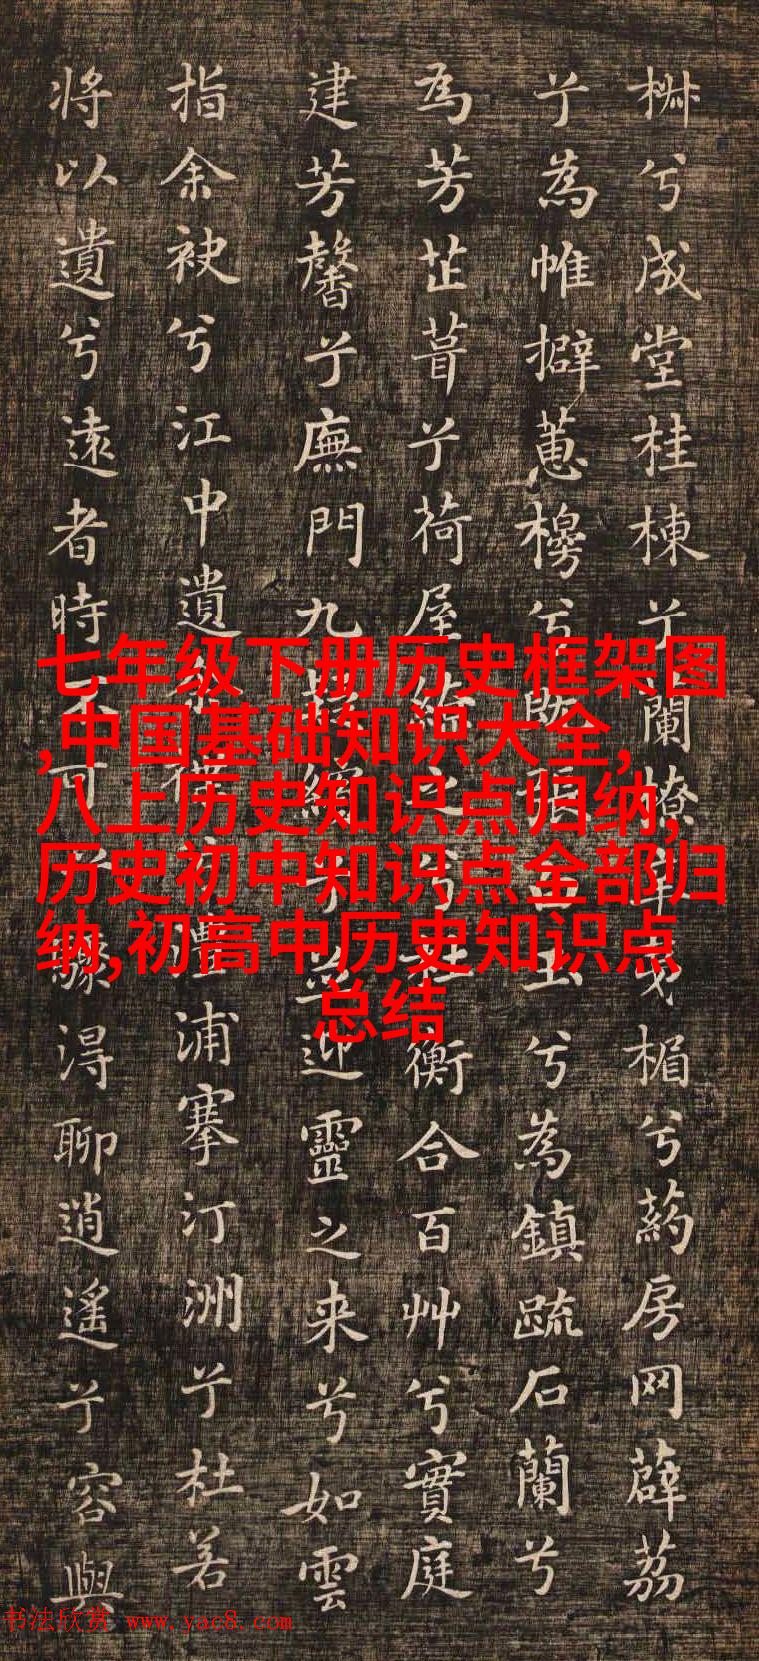 兮成堂桂棟兮蘭橑辛夷楣兮葯房网薜荔
兮為帷擗蕙櫋兮既張白玉兮為鎮疏石蘭兮
為芳芷葺兮荷屋繚之兮杜衡合百艸兮實庭
建芳馨兮廡門九嶷繽兮並迎靈之来兮如雲
指余袂兮江中遺余褋兮醴浦搴汀洲兮杜若
将以遺兮遠者時不可兮驟得聊逍遙兮容與
七年级下册历史框架图
,中国基础知识大全,
八上历史知识点归纳,
历史初中知识点全部归
纳,初高中历史知识点
总结
书法欣赏 www.yac8.com